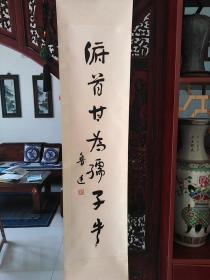 俯首甘为孺子牛
鲁迅